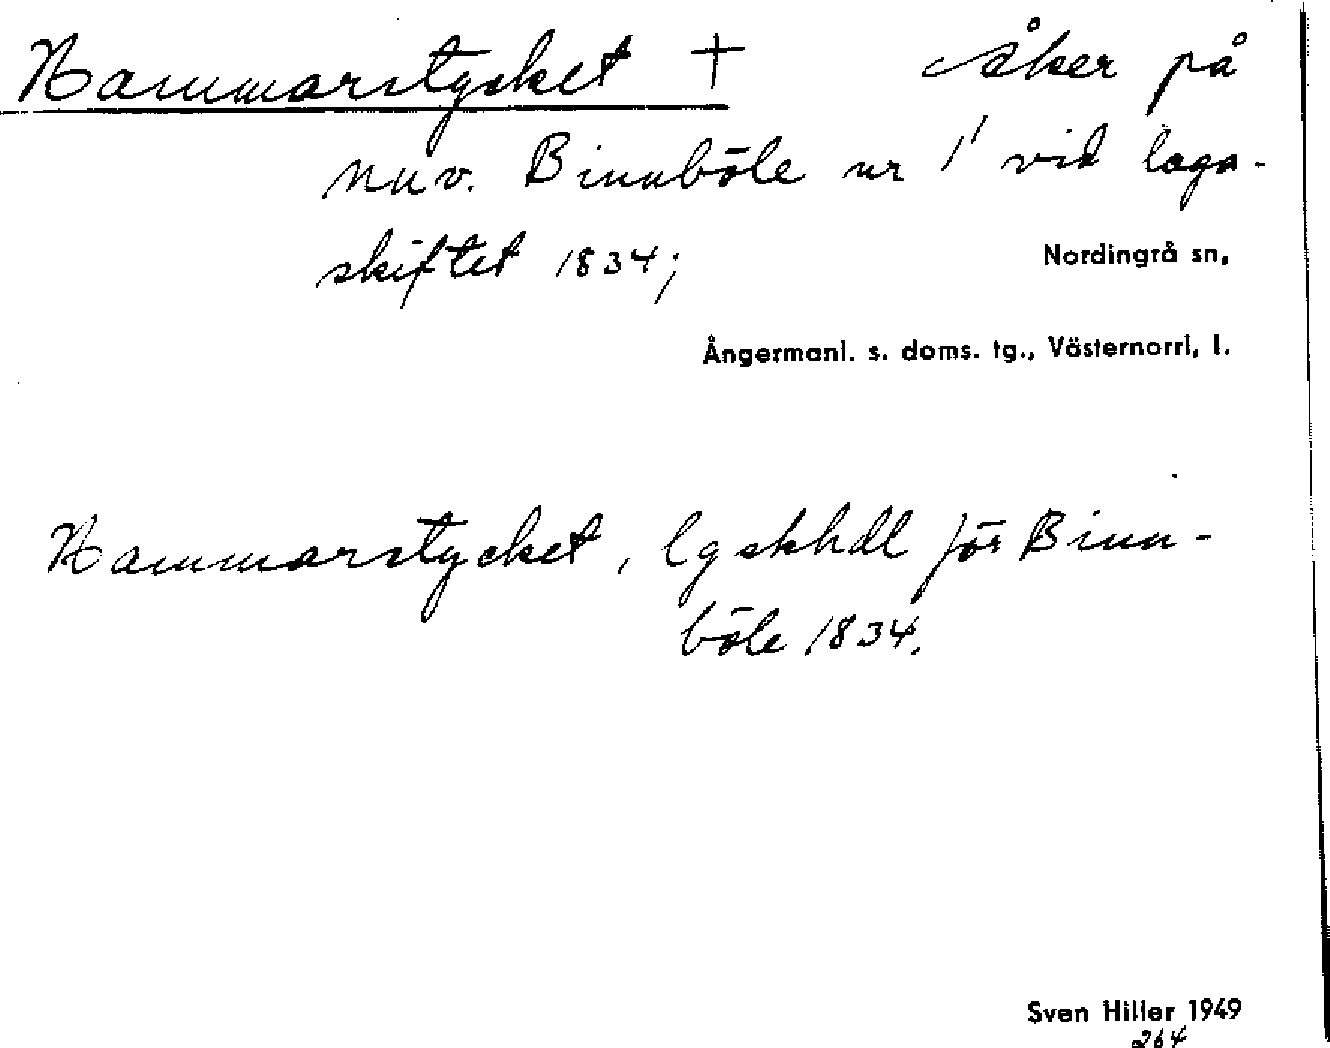 Hammarstycket † åker på
nuv. Binnböle nr 1¹ vid laga-
skiftet 1834;
Nordingrå sn,
Ångermanl. s. doms. tg., Västernorrl, l.
Hammarstycket, lgskhdl för Binn-
böle 1834.
Sven Hiller 1949
264